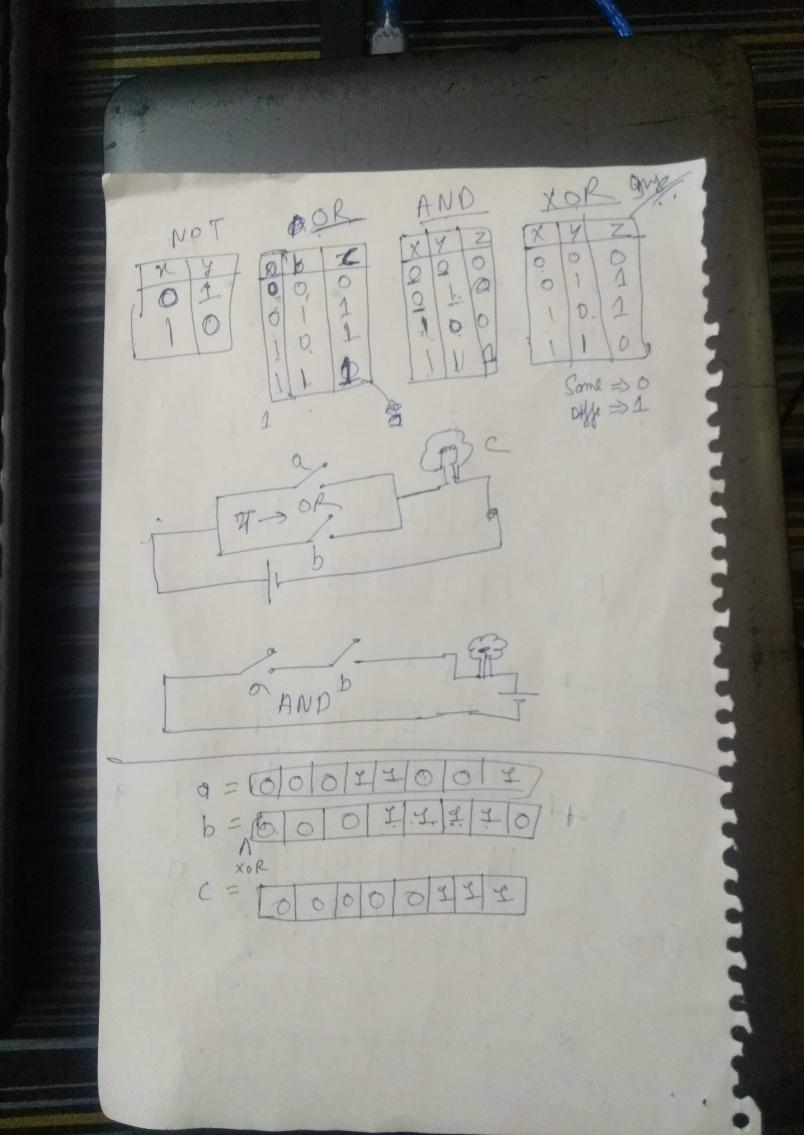 NOT
x y
0 1
1 0
OR
a b c
0 0 0
0 1 1
1 0 1
1 1 1
1
AND
X Y Z
0 0 0
0 1 0
1 0 0
1 1 1
XOR
X Y Z
0 0 0
0 1 1
1 0 1
1 1 0
Same ⇒ 0
Diffe ⇒ 1
a
C
या → OR
b
a b
AND
a = 0 0 0 1 1 0 0 1
b = 0 0 0 1 1 1 1 0
^
XOR
C = 0 0 0 0 0 1 1 1